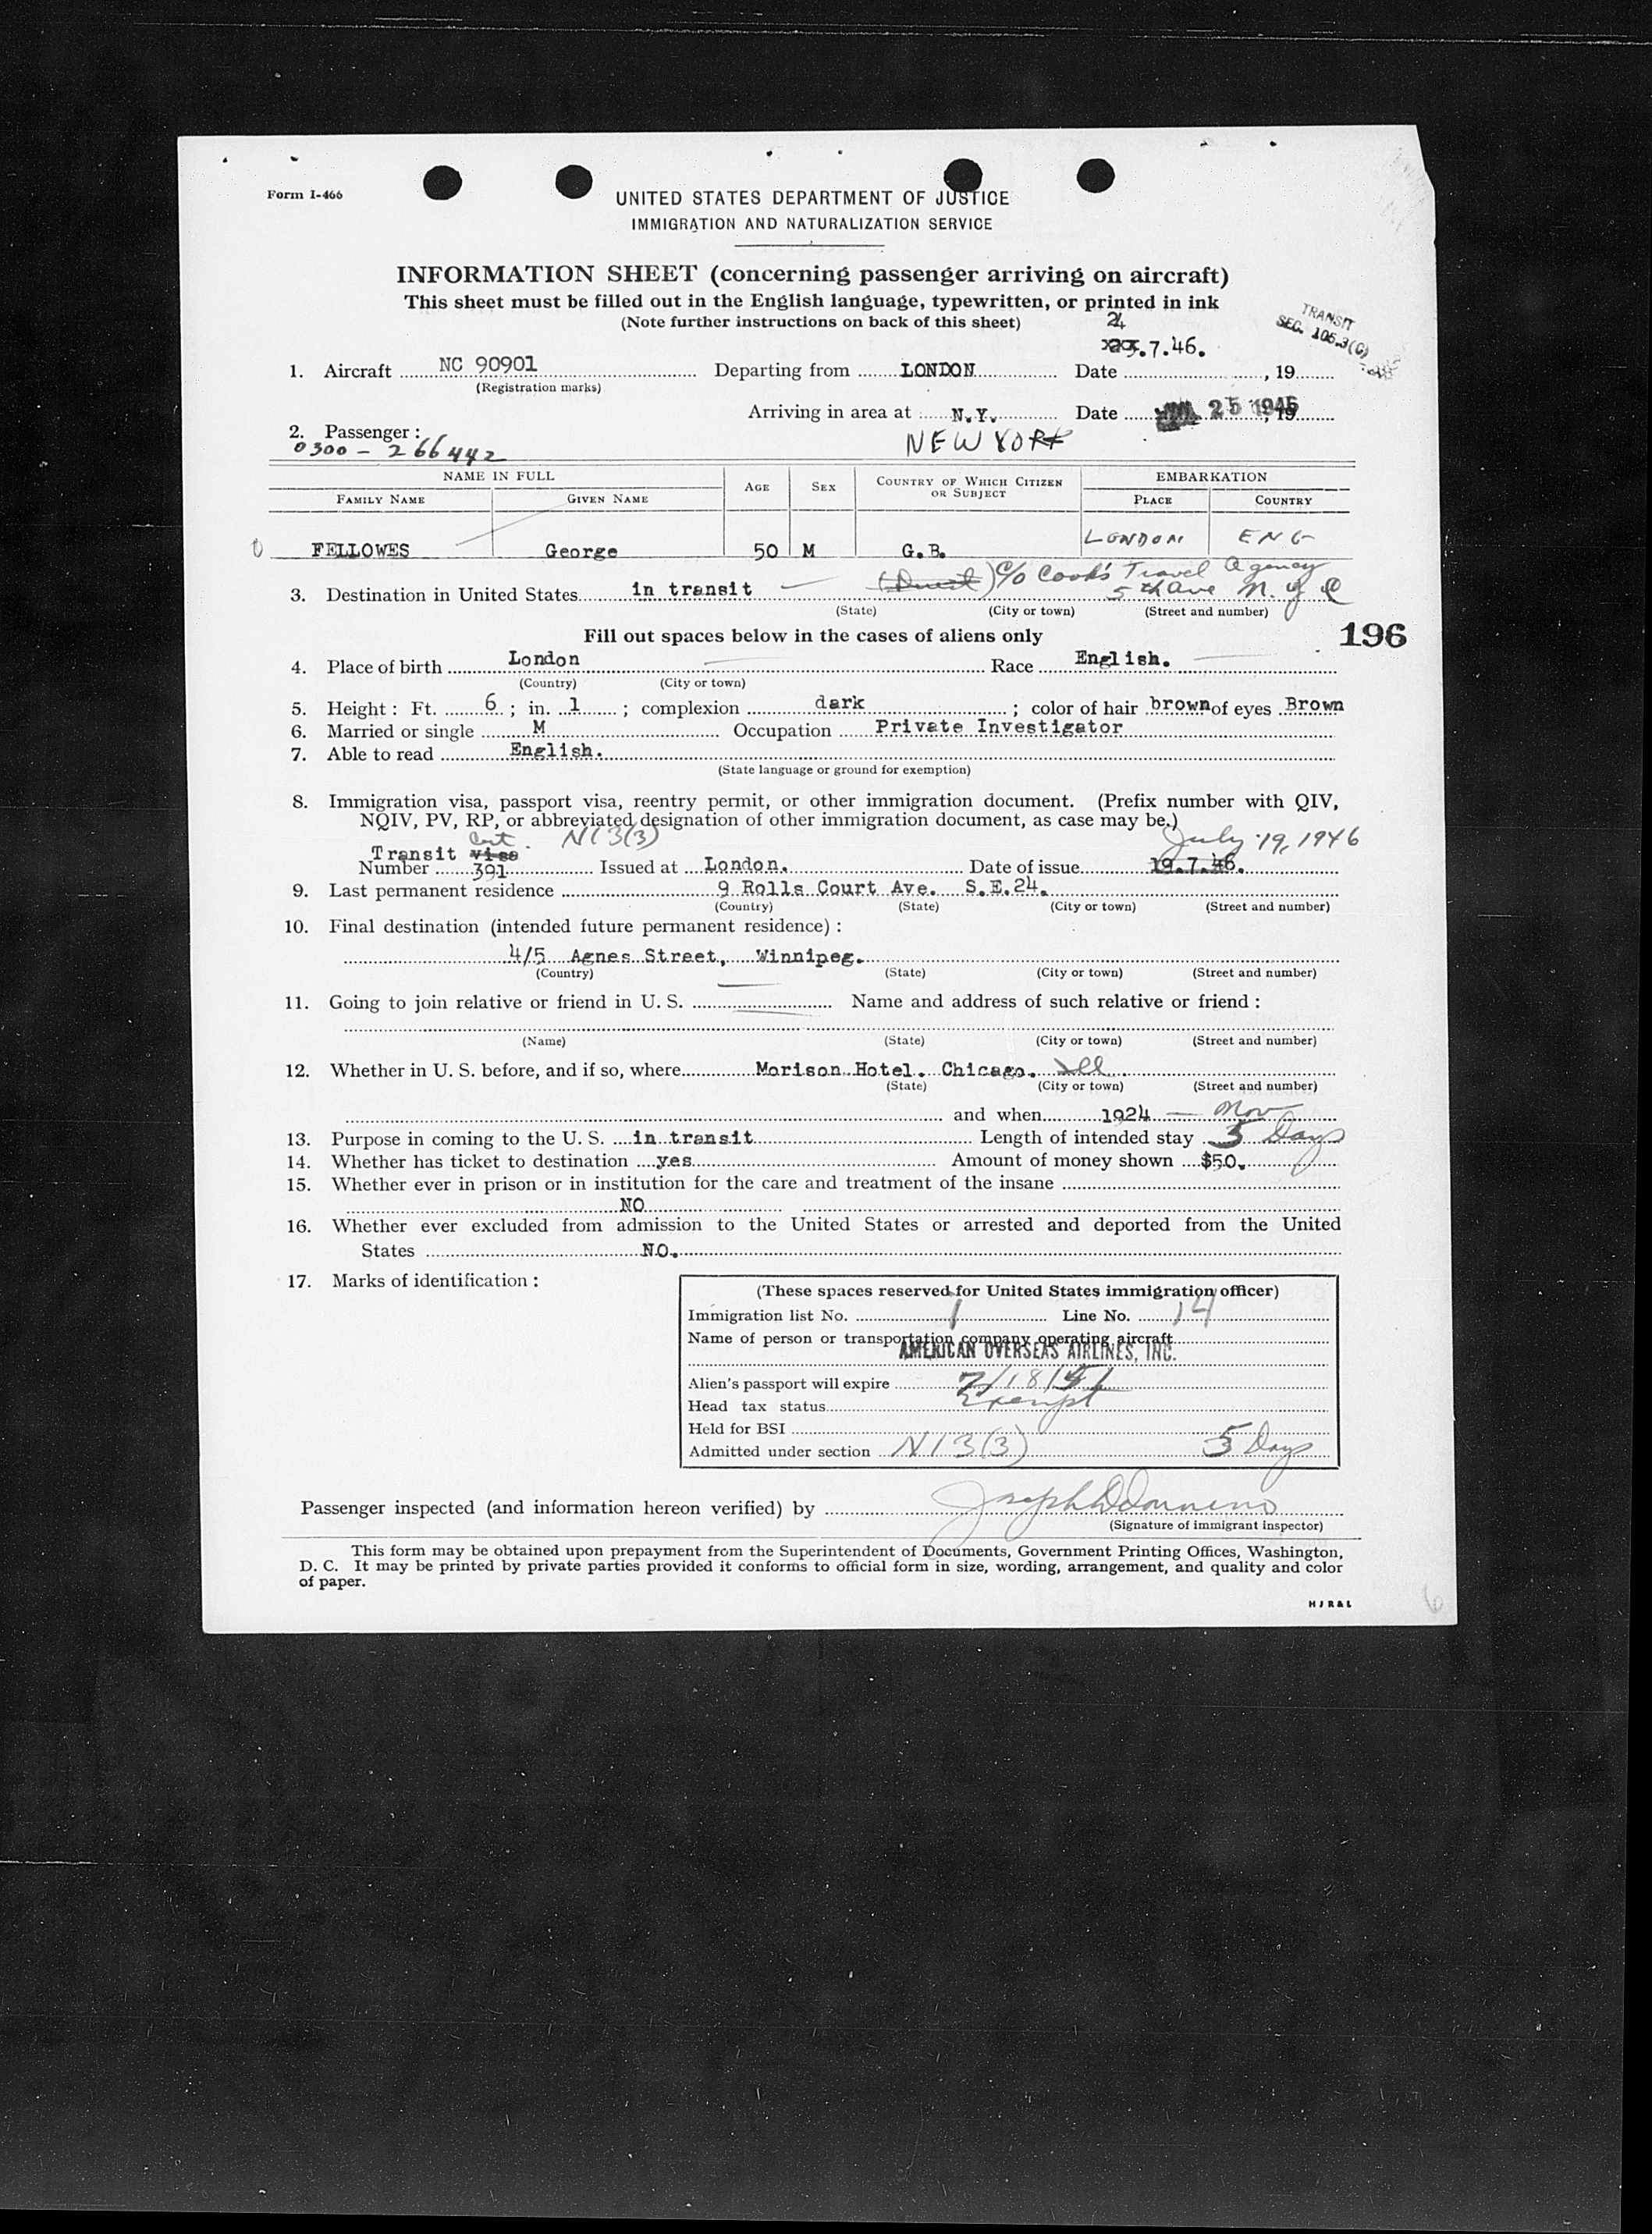 Form I-466
UNITED STATES DEPARTMENT OF JUSTICE
IMMIGRATION AND NATURALIZATION SERVICE
INFORMATION SHEET (concerning passenger arriving on aircraft)
This sheet must be filled out in the English language, typewritten, or printed in ink
(Note further instructions on back of this sheet)
TRANSIT
SEC. 105.3(C)
24
1. Aircraft NC 90901 Departing from LONDON Date .7.46. , 19
(Registration marks)
Arriving in area at N.Y. Date 25 1946 , 19
2. Passenger : NEW YORK
0300 - 266442
NAME IN FULL AGE SEX COUNTRY OF WHICH CITIZEN OR SUBJECT EMBARKATION
FAMILY NAME GIVEN NAME PLACE COUNTRY
FELLOWES George 50 M G.B. LONDON ENG
3. Destination in United States in transit c/o Cook's Travel Agency
5th Ave N.Y.C
(State) (City or town) (Street and number)
Fill out spaces below in the cases of aliens only 196
4. Place of birth London Race English.
(Country) (City or town)
5. Height : Ft. 6 ; in. 1 ; complexion dark ; color of hair brown of eyes Brown
6. Married or single M Occupation Private Investigator
7. Able to read English.
(State language or ground for exemption)
8. Immigration visa, passport visa, reentry permit, or other immigration document. (Prefix number with QIV,
NQIV, PV, RP, or abbreviated designation of other immigration document, as case may be.)
Cert. N13(3) July 19, 1946
Transit visa
Number 391 Issued at London. Date of issue 19.7.46.
9. Last permanent residence 9 Rolls Court Ave. S.E.24.
(Country) (State) (City or town) (Street and number)
10. Final destination (intended future permanent residence) :
4/5 Agnes Street, Winnipeg.
(Country) (State) (City or town) (Street and number)
11. Going to join relative or friend in U. S. Name and address of such relative or friend :
(Name) (State) (City or town) (Street and number)
12. Whether in U. S. before, and if so, where Morison Hotel. Chicago. Ill
(State) (City or town) (Street and number)
and when 1924 - Nov
13. Purpose in coming to the U. S. in transit Length of intended stay 5 Days
14. Whether has ticket to destination yes Amount of money shown $50.
15. Whether ever in prison or in institution for the care and treatment of the insane
NO
16. Whether ever excluded from admission to the United States or arrested and deported from the United
States NO.
17. Marks of identification :
(These spaces reserved for United States immigration officer)
Immigration list No. 1 Line No. 14
Name of person or transportation company operating aircraft
AMERICAN OVERSEAS AIRLINES, INC.
Alien's passport will expire 7/18/51
Head tax status Exempt
Held for BSI
Admitted under section N13(3) 5 Days
Passenger inspected (and information hereon verified) by
(Signature of immigrant inspector)
This form may be obtained upon prepayment from the Superintendent of Documents, Government Printing Offices, Washington,
D. C. It may be printed by private parties provided it conforms to official form in size, wording, arrangement, and quality and color
of paper.
HJR&L
6